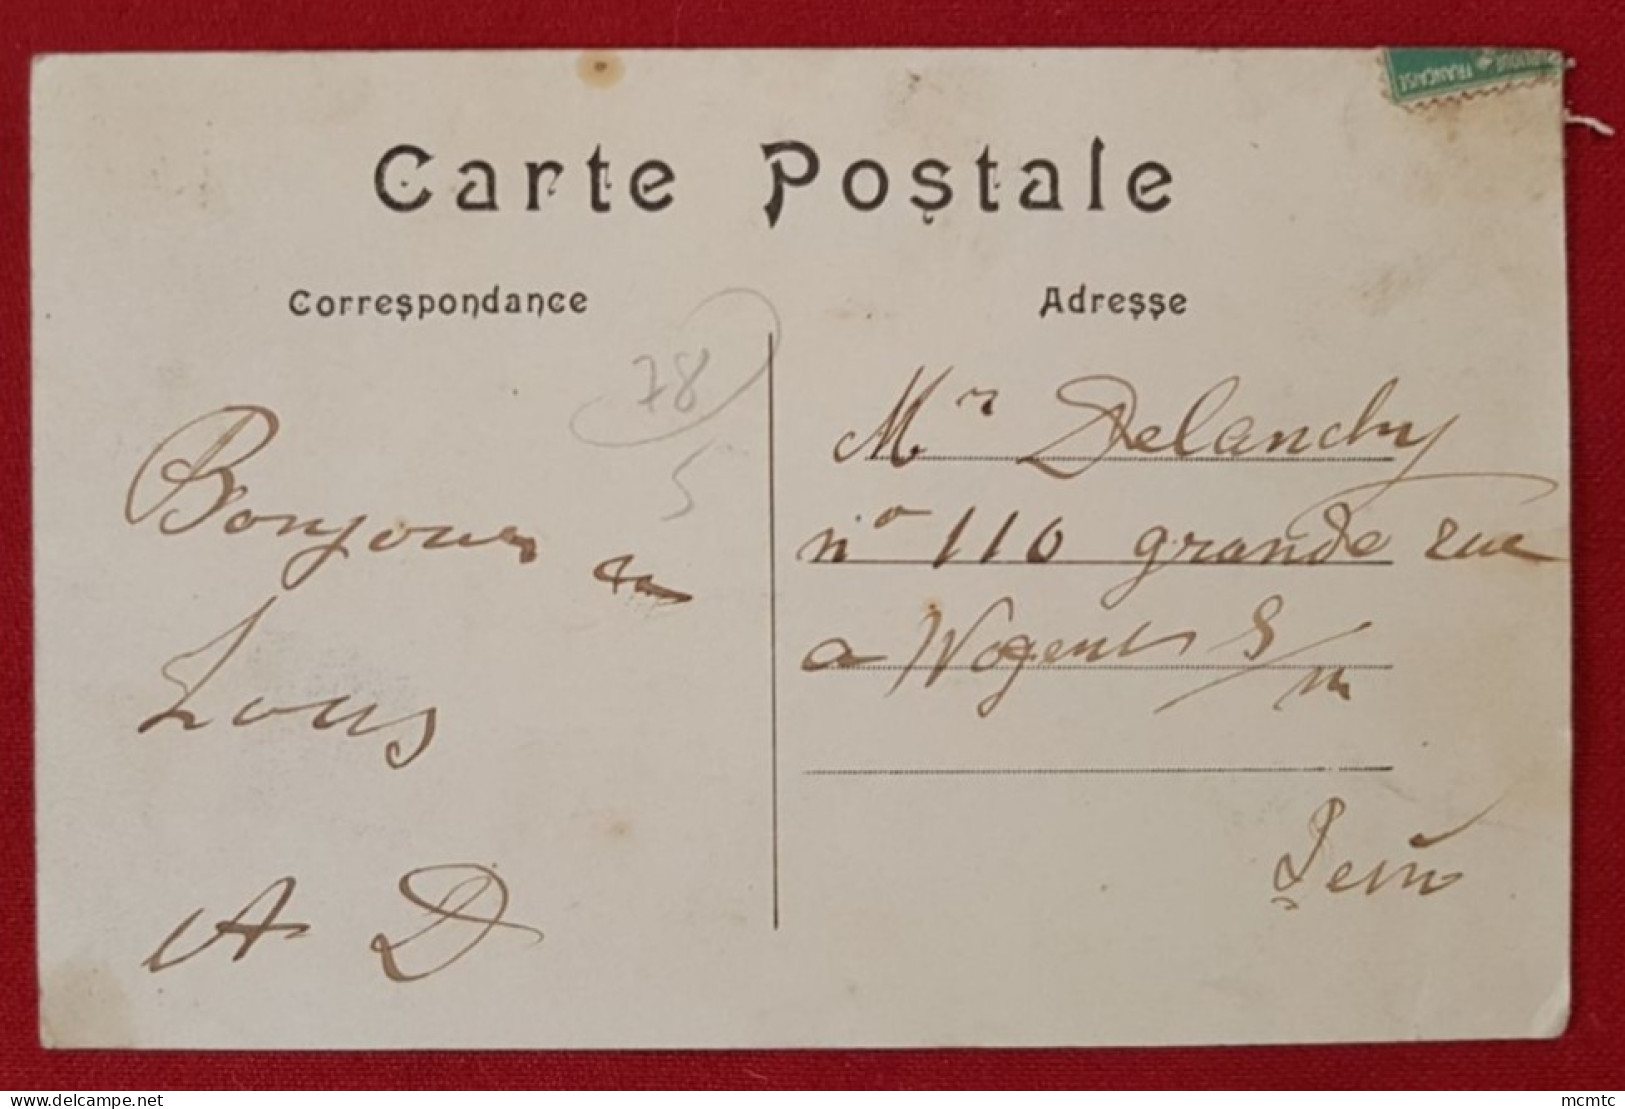 Carte Postale
Correspondance
Adresse
78
5
Bonjour a
Tous
A D
Mr Delanchy
n° 110 grande rue
a Nogent S/m
FRANÇAISE
www.delcampe.net
mcmtc